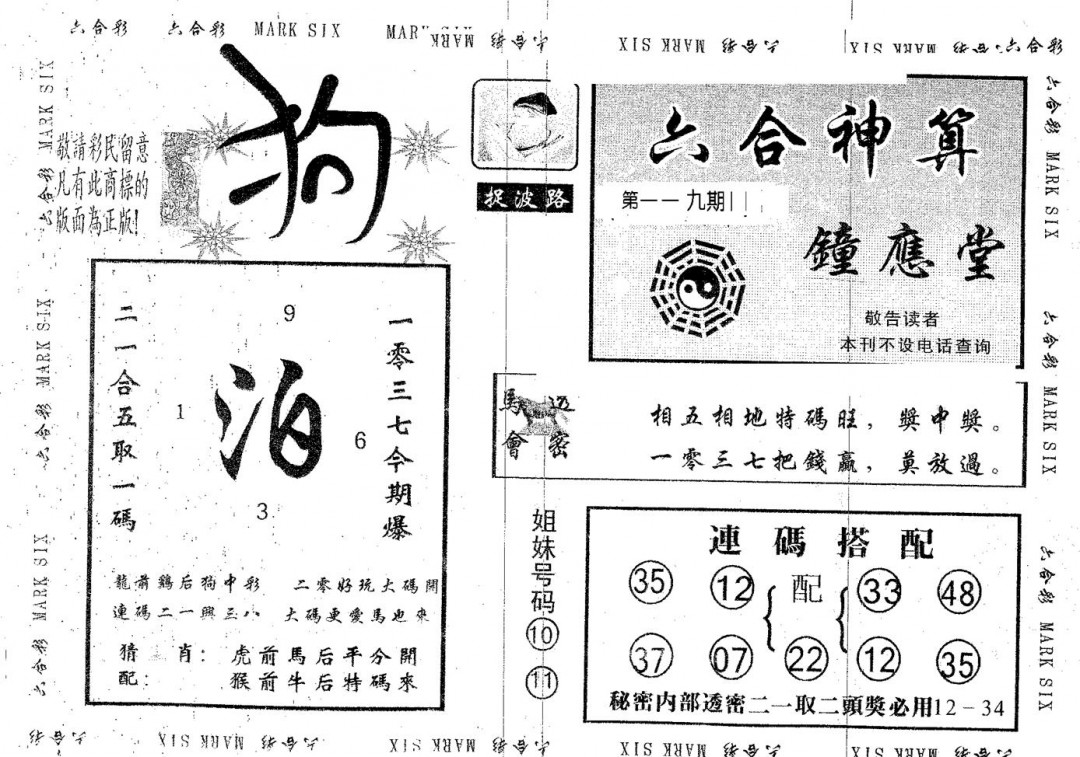 六合彩 六合彩 MARK SIX MARK MARK 六合彩 MARK SIX 六合彩 MARK SIX 六合彩 六合彩
六合彩 MARK SIX 六合彩 MARK SIX 六合彩 MARK SIX
敬請彩民留意
凡有此商標的
版面為正版!
狗
捉波路
六合神算
第一一九期
鐘應堂
敬告读者
本刊不设电话查询
二一合五取一碼
9
1
泊
6
3
一零三七今期爆
龍前鷄后狗中彩 二零好玩大碼開
連碼二一興三八 大碼更愛馬也來
猜 肖: 虎前馬后平分開
配: 猴前牛后特碼來
馬會
透密
相五相地特碼旺,獎中獎。
一零三七把錢贏,莫放過。
姐妹号码
10
11
連碼搭配
35 12 配 33 48
37 07 22 12 35
秘密内部透密二一取二頭獎必用12-34
六合彩 MARK SIX 六合彩 MARK SIX 六合彩 MARK SIX
六合彩 MARK SIX 六合彩 MARK SIX 六合彩 MARK SIX 六合彩 MARK SIX 六合彩